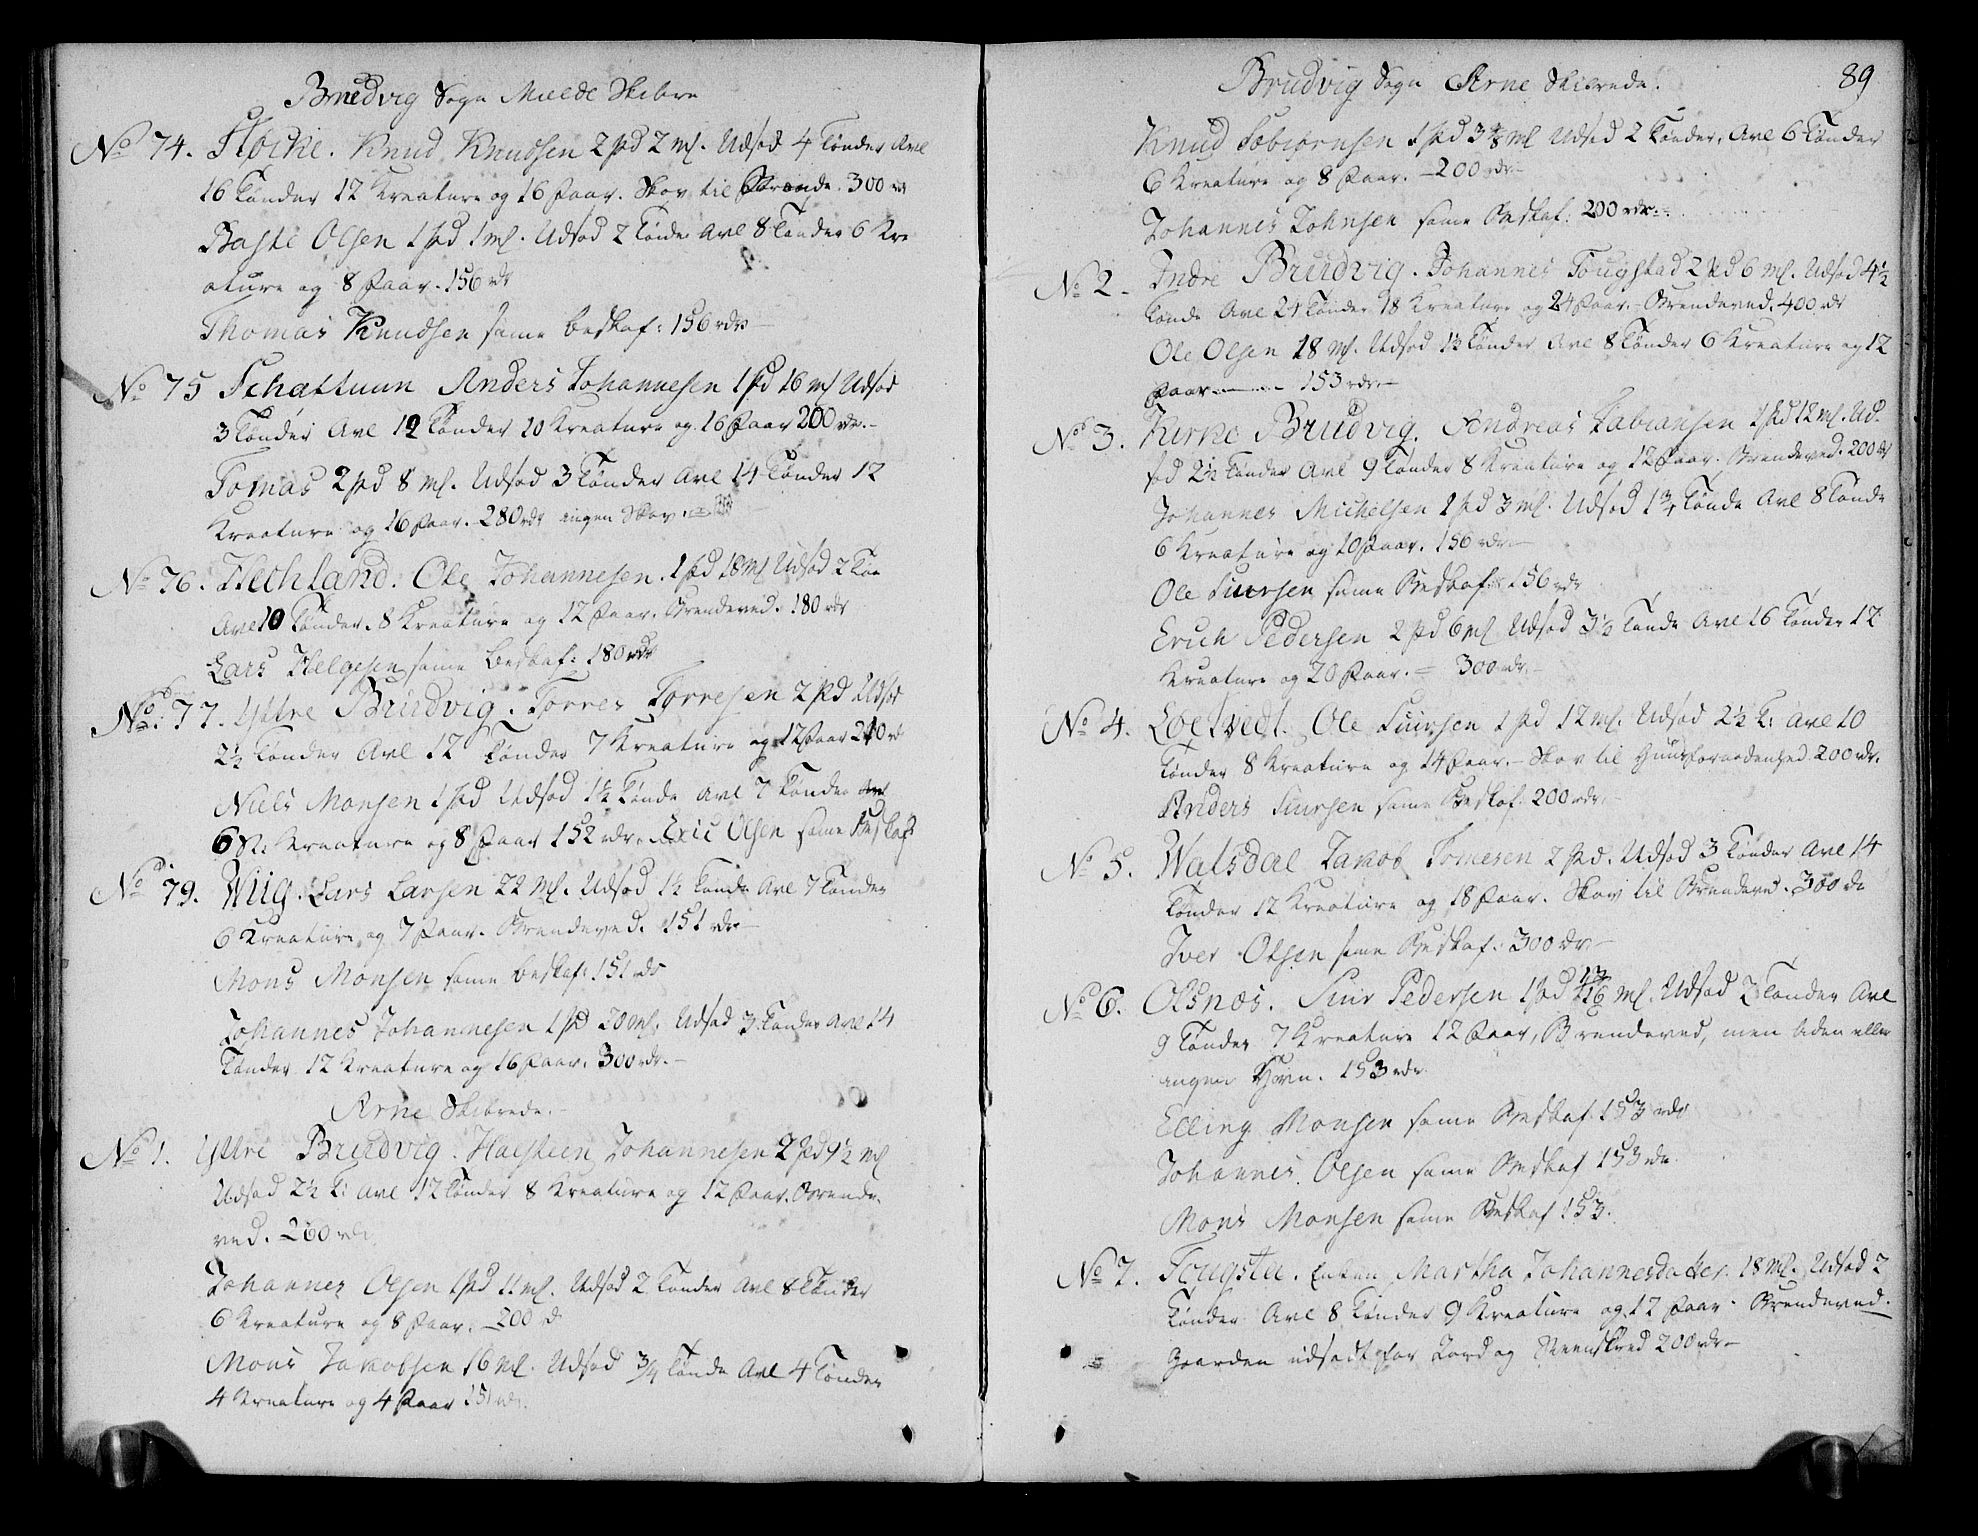 Brudvig Sogn Mielde Skibre
No 74. Flocke. Knud Knudsen 2 pd 2 ml. Udsæd 4 Tønder Avl
16 Tønder 12 Kreature og 16 Faar. Skov til Brende. 300 rd
Baste Olsen 1 pd 1 ml. Udsæd 2 Tønder Avl 8 Tønder 6 Kre
ature og 8 Faar. 156 rdr
Thomas Knudsen same beskaf: 156 rdr
No 75 Schattuun Anders Johannesen 1 pd 16 ml Udsæd
3 Tønder Avl 12 Tønder 10 Kreature og 16 Faar 200 rdr.
Tomas 2 pd 8 ml. Udsæd 3 Tønder Avl 14 Tønder 12
Kreature og 16 Faar. 280 rdr ingen Skov.
No 76. Hechland. Ole Johannesen. 1 pd 18 ml Udsæd 2 Tøn
Avl 10 Tønder. 8 Kreature og 12 Faar. Brendeved. 180 rdr
Lars Helgesen same beskaf: 180 rdr
No. 77. Yttre Brudvig. Torres Torresen 2 pd Udsæd
2½ Tønder Avl 12 Tønder 7 Kreature og 12 Faar 210 rd
Niels Monsen 1 pd Udsæd 1½ Tønde Avl 7 Tønder
6 Kreature og 8 Faar 152 rdr. Eric Olsen same Beskaf
No 79. Wiig. Lars Larsen 22 ml. Udsæd 1½ Tønde Avl 7 Tønder
6 Kreature og 7 Faar. Brendeved. 151 rdr
Mons Monsen same beskaf: 151 rdr
Johannes Johannesen 1 pd 20 ml. Udsæd 3 Tønder Avl 14
Tønder 12 Kreature og 16 Faar. 300 rdr.
Arne Skibrede.
No 1. Yttre Brudvig. Halsteen Johannesen 2 pd 9½ ml
Udsæd 2½ T: Avl 12 Tønder 8 Kreature og 12 Faar. Brende-
ved. 260 rdr
Johannes Olsen 1 pd 11 ml. Udsæd 2 Tønder Avl 8 Tønder
6 Kreature og 8 Faar. 200 rd
Mons Jakobsen 16 ml. Udsæd 3/4 Tønde Avl 4 Tønder
4 Kreature og 4 Faar 151 rdr.
Brudvig Sogn Arne Skibrede.
89
Knud Tobiornsen 1 pd 3 ml Udsæd 2 Tønder, Avl 6 Tønder
6 Kreature og 8 Faar. 200 rdr
Johannes Johnsen same Beskaf: 200 rdr.
No 2. Indre Brudvig. Johannes Tougstad 2 pd 6 ml. Udsæd 4½
Tønde Avl 24 Tønder 18 Kreature og 24 Faar. Brendeved. 400 rdr
Ole Olsen 18 ml. Udsæd 1½ Tønder Avl 8 Tønder 6 Kreature og 12
Faar. 153 rdr.
No 3. Kirke Brudvig. Andreas Fabiansen 1 pd 12 ml. Ud-
sæd 2½ Tønder Avl 9 Tønder 8 Kreature og 12 Faar. Brendeved. 200 rd
Johannes Michelsen 1 pd 3 ml. Udsæd 1¾ Tønde Avl 8 Tønde
6 Kreature og 10 Faar. 156 rdr.
Ole Siursen same Beskaf: 156 rdr
Erich Pedersen 2 pd 6 ml Udsæd 3½ Tønde Avl 16 Tønder 12
Kreature og 20 Faar. = 300 rdr.
No 4. Loetvedt. Ole Siursen 1 pd 12 ml. Udsæd 2½ T: Avl 10
Tønder 8 Kreature og 14 Faar. Skov til Huusfornødenhed 200 rdr.
Anders Siursen same Beskaf: 200 rdr.
No 5. Watsdal Jakob Tomesen 2 pd. Udsæd 3 Tønder Avl 14
Tønder 12 Kreature og 18 Faar. Skov til Brendeved. 300 rdr
Iver Olsen same Beskaf: 300 rdr
No 6. Olsnæs. Siur Pedersen 1 pd 13 ml. Udsæd 2 Tønder Avl
9 Tønder 7 Kreature 12 Faar, Brendeved, men liden eller
ingen Havn. 153 rdr
Elling Monsen same Beskaf 153 rdr
Johannes Olsen same Beskaf 153 rdr.
Mons Monsen same Beskaf 153.
No 7. Tougsta. Enken Martha Johannesdatter. 18 ml. Udsæd 2
Tønder Avl 8 Tønder 9 Kreature og 12 Faar. Brendeved.
Gaarden udsadt for Jord og Steenskred 200 rdr